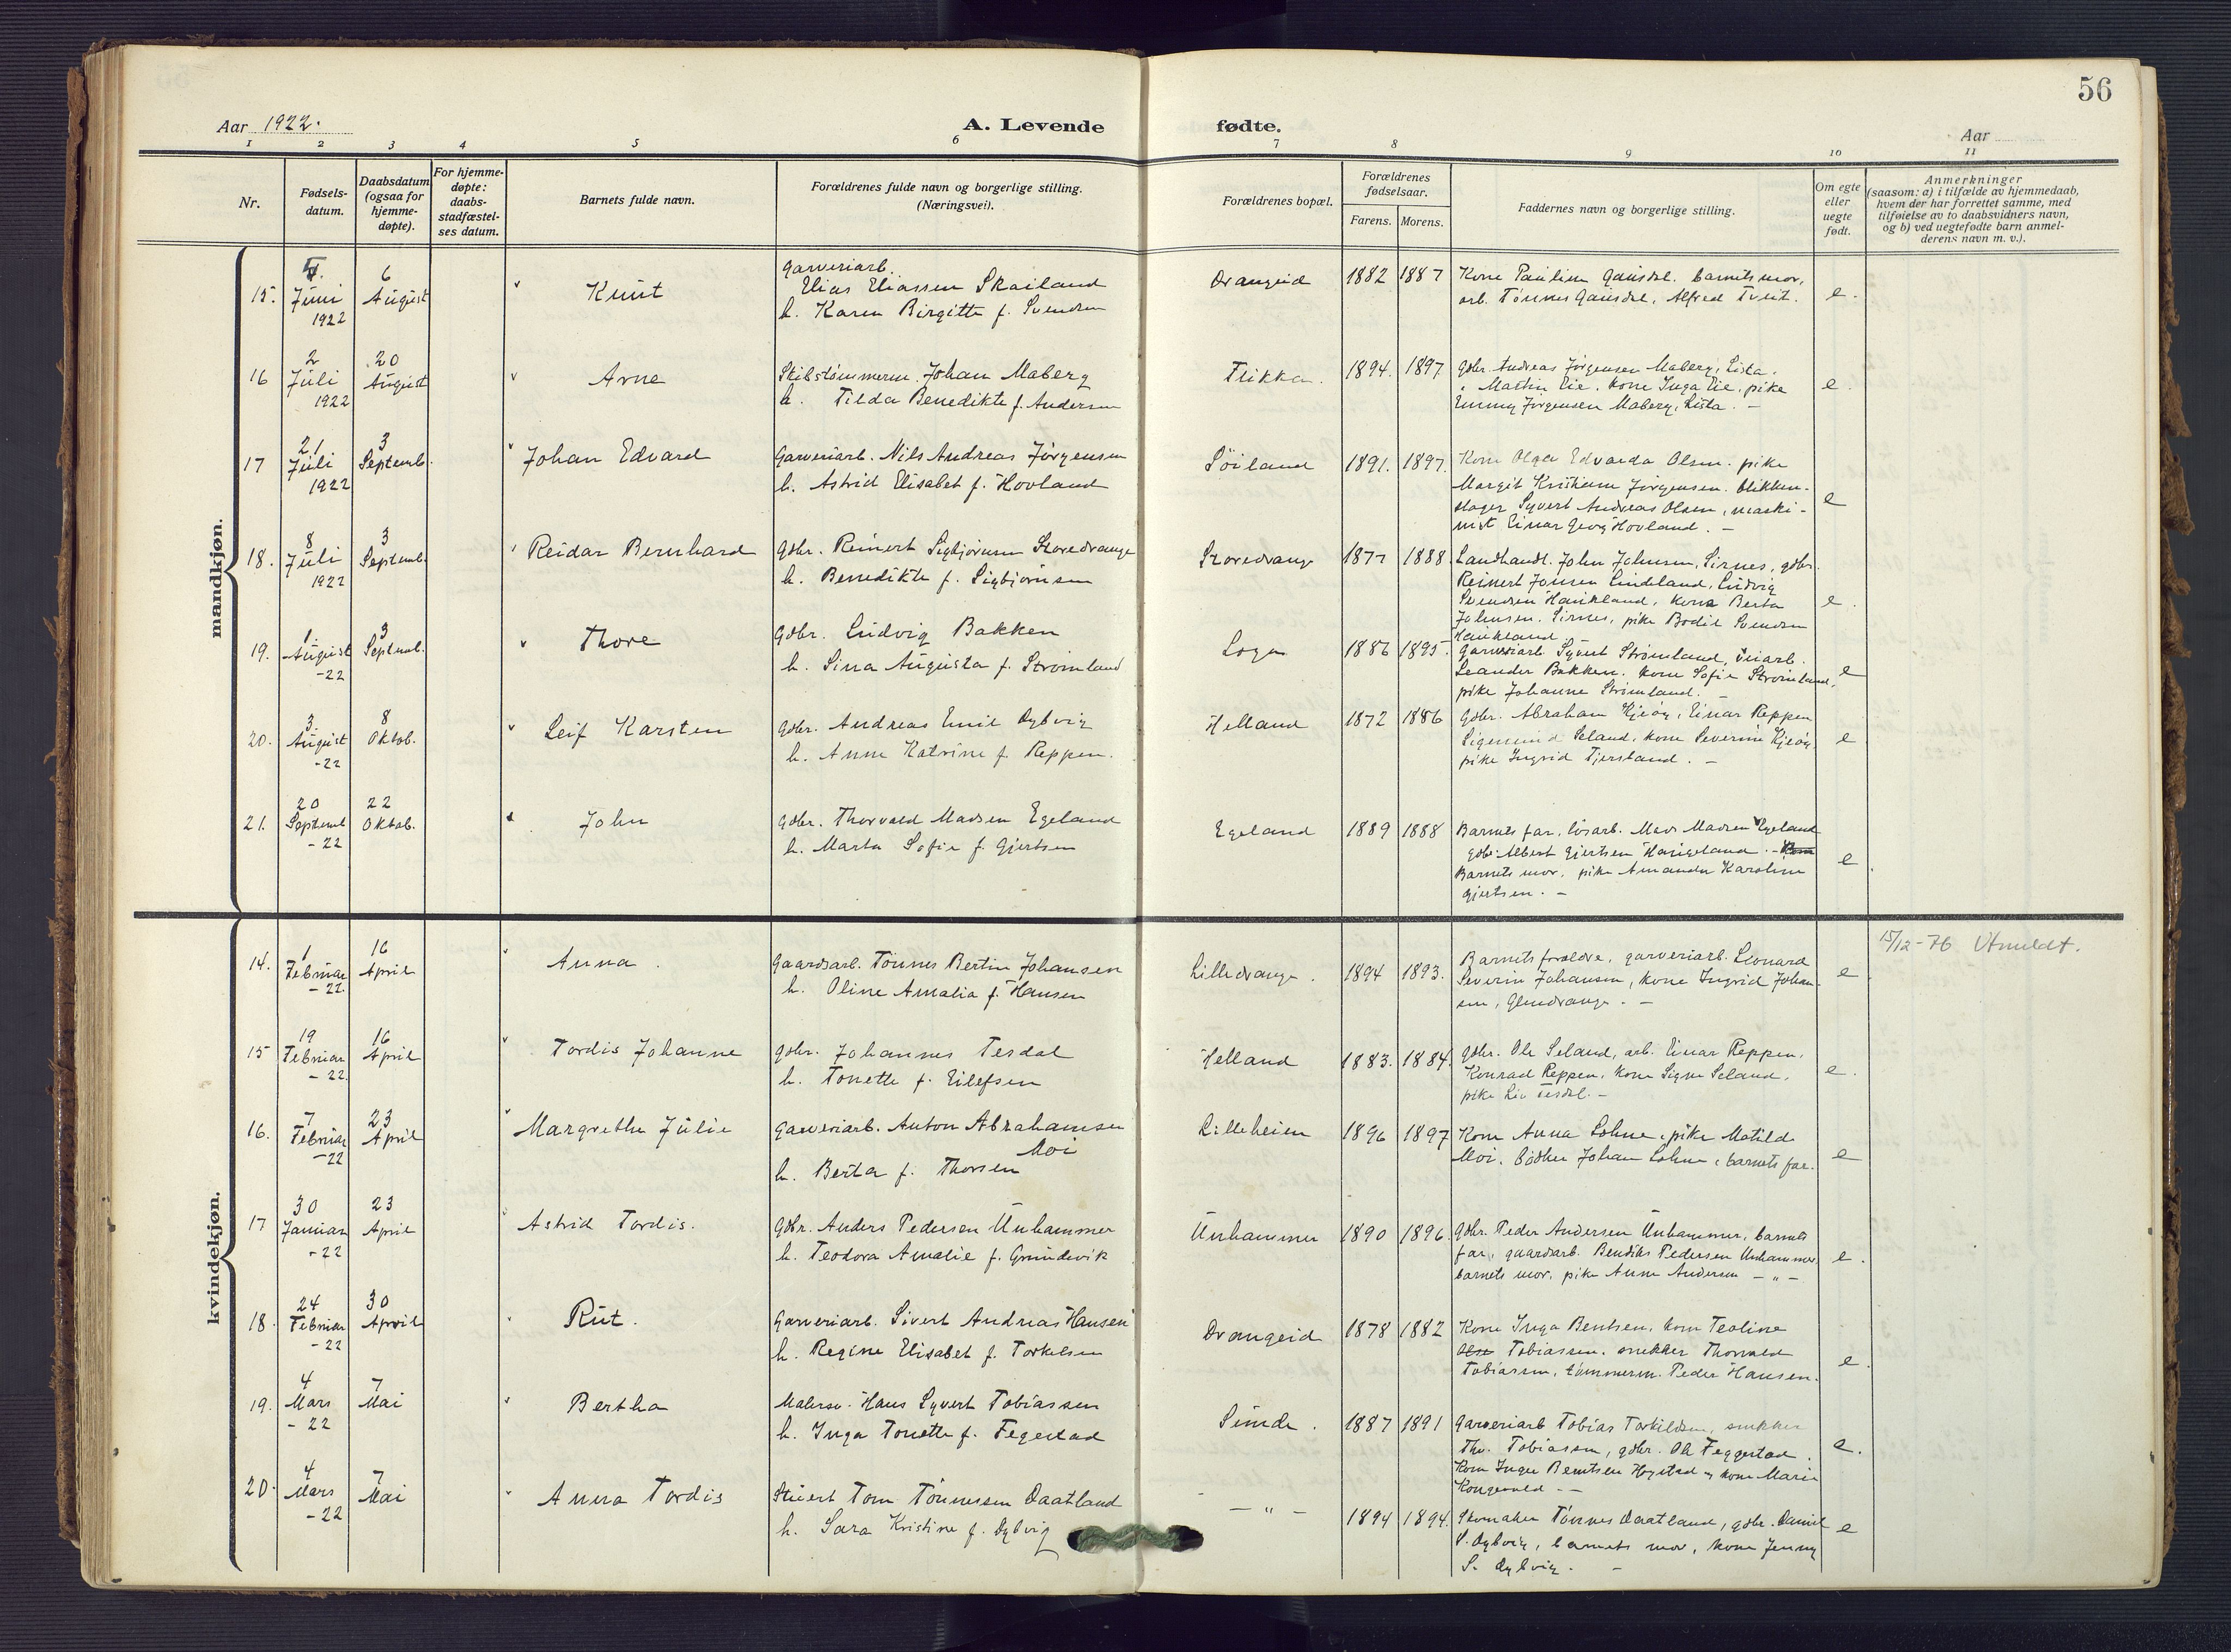 56
Aar 1922.
A. Levende fødte.
Aar
1 2 3 4 5 6 7 8 9 10 11
Nr.
Fødsels-
datum.
Daabsdatum
(ogsaa for
hjemme-
døpte).
For hjemme-
døpte:
daabs-
stadfæstel-
ses datum.
Barnets fulde navn.
Forældrenes fulde navn og borgerlige stilling.
(Næringsvei).
Forældrenes bopæl.
Forældrenes
fødselsaar.
Farens. Morens.
Faddernes navn og borgerlige stilling.
Om egte
eller
uegte
født.
Anmerkninger
(saasom: a) i tilfælde av hjemmedaab,
hvem der har forrettet samme, med
tilføielse av to daabsvidners navn,
og b) ved uegtefødte barn anmel-
derens navn m. v.).
mandkjøn.
15. Juni 1922
6 August
Knut
Garveriarb.
Elias Eliassen Skailand
h. Karen Birgitte f. Svendsen
Drangeid
1882 1887
Kone Pauline Gausdal. barnets mor,
arb. Tønnes Gausdal, Alfred Tveit.
e.
16 2 Juli 1922
20 August
Arne
Skibstømmerm. Johan Maberg
h. Tilda Benedikte f. Andersen
Flikka.
1894. 1897
Gbr. Andreas Jørgensen Maberg, Lista.
" Martin Eie. kone Inga Eie, pike
Emmy Jørgensen Maberg, Lista. -
e.
17 21 Juli 1922
3 Septemb.
Johan Edvard
Garveriarb. Nils Andreas Jørgensen
h. Astrid Elisabet f. Hovland
Søiland
1891. 1897.
Kone Olga Edvarda Olsen. pike
Margit Kristiane Jørgensen. blikken-
slager Syvert Andreas Olsen, maski-
nist Einar Georg Hovland. -
e
18. 8 Juli 1922
3 Septemb.
Reidar Bernhard
Gbr. Reinert Sigbjørnsen Storedrange
h. Benedikte f. Sigbjørnsen
Storedrange
1877 1888
Landhandl. John Johnsen, Sirnes, gbr.
Reinert Jonsen Lindeland, Ludvig
Svendsen Haukland, kone Berta
Johnsen. Sirnes, pike Bodil Svendsen
Haukland.
e.
19. 1. August -22
3 Septemb.
Thore
Gbr. Ludvig Bakken
h. Sina Augusta f. Strømland
Loga
1886 1895.
Garveriarb. Syvert Strømland, veiarb.
Leander Bakken. kone Sofie Strømland,
pike Johanne Strømland. -
e
20. 3. August -22
8 Oktob.
Leif Karsten
Gbr. Andreas Emil Dybvig
h. Anne Katrine f. Reppen.
Helland
1872 1886
Gbr. Abraham Kjeøy, Einar Reppen
Sigemund Seland, kone Severine Kjeøy
pike Ingrid Tjersland. -
e
21. 20 Septemb -22
22 Oktob.
John
Gbr. Thorvald Madsen Egeland
h. Marta Sofie f. Gjertsen
Egeland
1889 1888
Barnets far, løsarb. Mads Madsen Egeland
gbr. Albert Gjertsen Haugeland. -
Barnets mor, pike Amanda Karoline
Gjertsen. -
e.
kvindekjøn.
14. 1 Februar -22.
16 April
Anna.
Gaardsarb. Tønnes Bertin Johansen
h. Oline Amalia f. Hansen
Lilledrange.
1894 1893.
Barnets forældre, garveriarb. Leonard
Severin Johansen, kone Ingrid Johan-
sen, Glendrange. -
e.
15/12-76 Utmeldt.
15 19 Februar -22.
16 April
Tordis Johanne
Gbr. Johannes Tesdal
h. Tonette f. Eilefsen
Helland
1883. 1884.
Gbr. Ole Seland, arb. Einar Reppen.
Konrad Reppen. kone Signe Seland,
pike Liv Tesdal. -
e.
16. 7 Februar -22
23 April
Margrethe Julie
Garveriarb. Anton Abrahamsen
Moi
h. Berta f. Thorsen
Lilleheien
1896 1897
Kone Anna Lohne, pike Matilde
Moi, bødker Johan Lohne, barnets far.
e
17 30 Januar -22
23 April
Astrid Tordis.
Gbr. Anders Pedersen Unhammer
h. Teodora Amalie f. Grundevik
Unhammer
1890 1896.
Gbr. Peder Andersen Unhammer, barnets
far, gaardarb. Bendiks Pedersen Unhammer
barnets mor. pike Anne Andersen - " -
e.
18. 24 Februar -22
30 April
Rut.
Garveriarb. Sivert Andreas Hansen
h. Regine Elisabet f. Torkelsen
Drangeid
1878 1882
Kone Inga Bentsen, kone Teoline
Tobiassen. snekker Thorvald
Tobiassen, tømmerm. Peder Hansen.
e.
19. 4 Mars -22
7 Mai
Bertha
Malersv. Hans Syvert Tobiassen
h. Inga Tonette f. Fegestad
Sunde.
1887 1891
Garveriarb Tobias Torkildsen, snekker
Thv. Tobiassen, gbr. Ole Feggestad.
Kone Inger Berntsen Hegstad og kone Marie
Kongevold --
e.
20. 4 Mars -22
7 Mai
Anna Tordis
Stuert Tom Tønnessen Daatland
h. Sara Kristine f. Dybvig
- " -
1894 1894.
Skomaker Tønnes Daatland, gbr. Daniel
S. Dybvig, barnets mor, kone Jenny
S. Dybvig. -
e